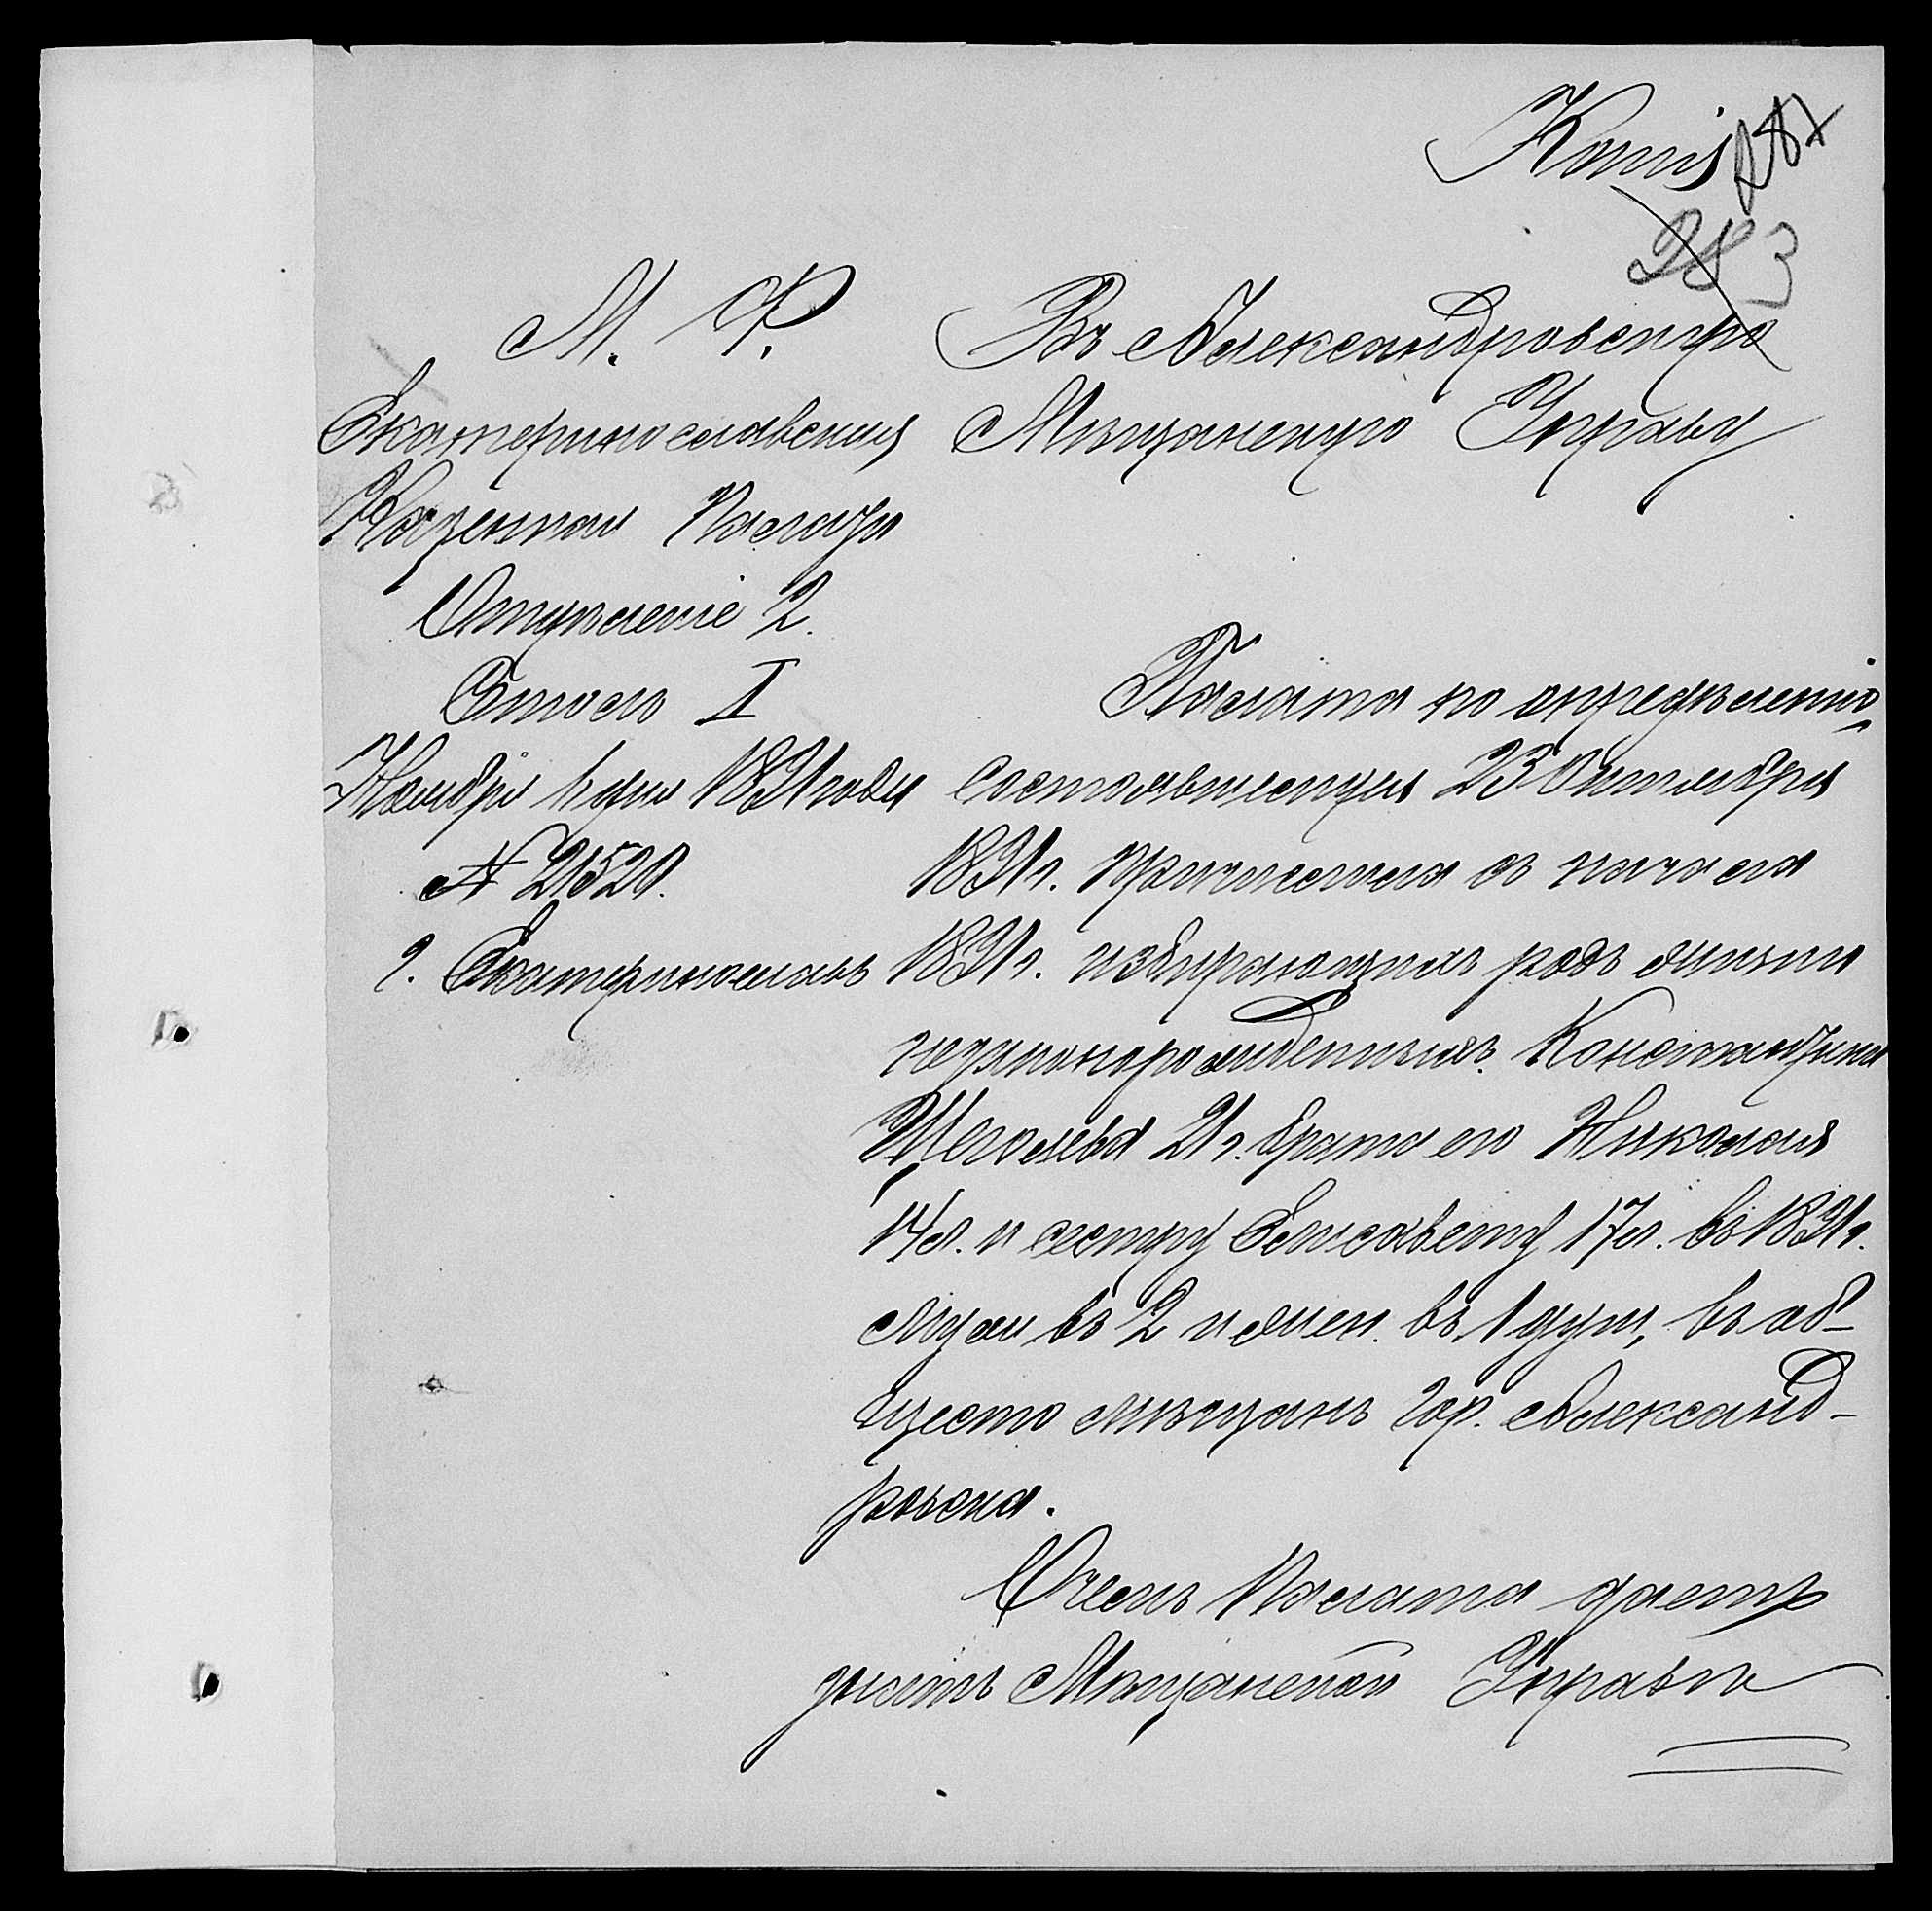 Копія
283
М. Ф.
Екатеринославская
Казенная Палата
Отдѣленіе 2.
Столъ I
Ноября 1 дня 1891 года
№ 21520.
г. Екатеринославъ
Въ Александровскую
Мѣщанскую Управу
Палата по опредѣленію,
состоявшемуся 23 Октября
1891 г. причислила съ начала
1891 г. избирающихъ родъ жизни
незаконорожденныхъ Константина
Щеголева 21 г. брата его Николая
14 л. и сестру Елисавету 17 л. въ 1891 г.
муж въ 2 и жен. въ 1 душ, въ об-
щество мѣщанъ гор. Александ-
ровска.
О чемъ Палата даетъ
знать Мѣщанской Управѣ